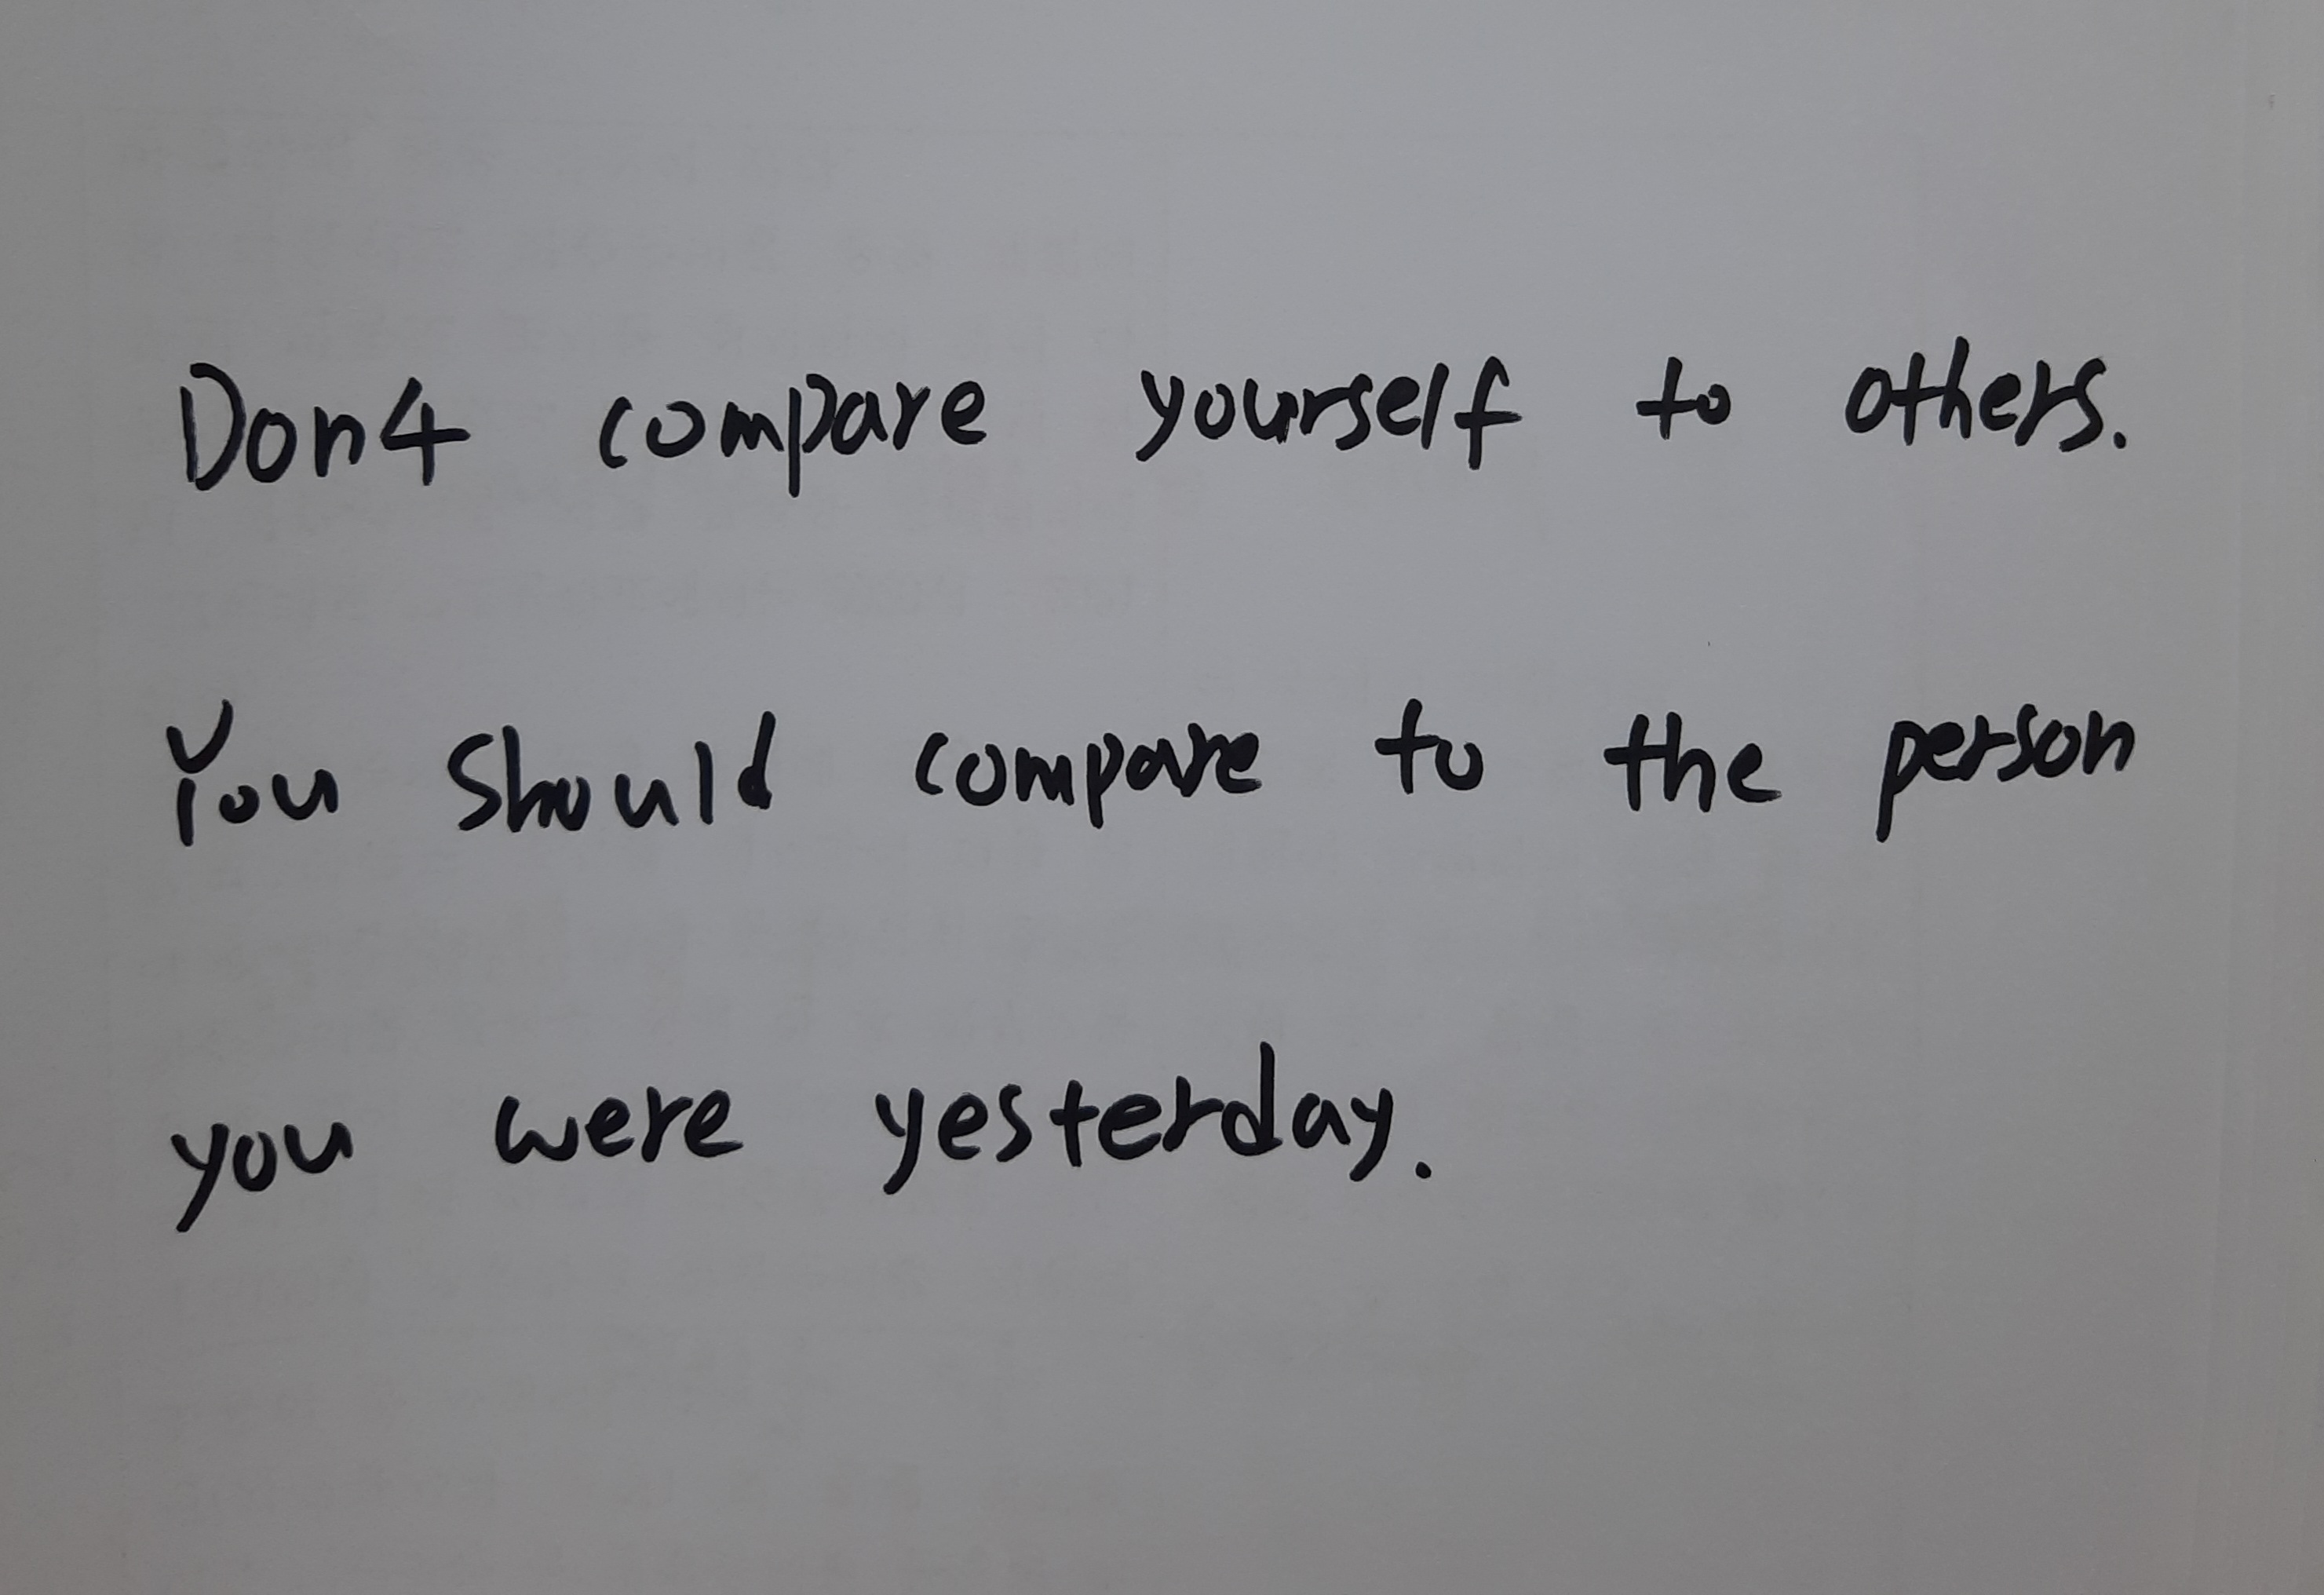 Don't compare yourself to others.
You should compare to the person
you were yesterday.